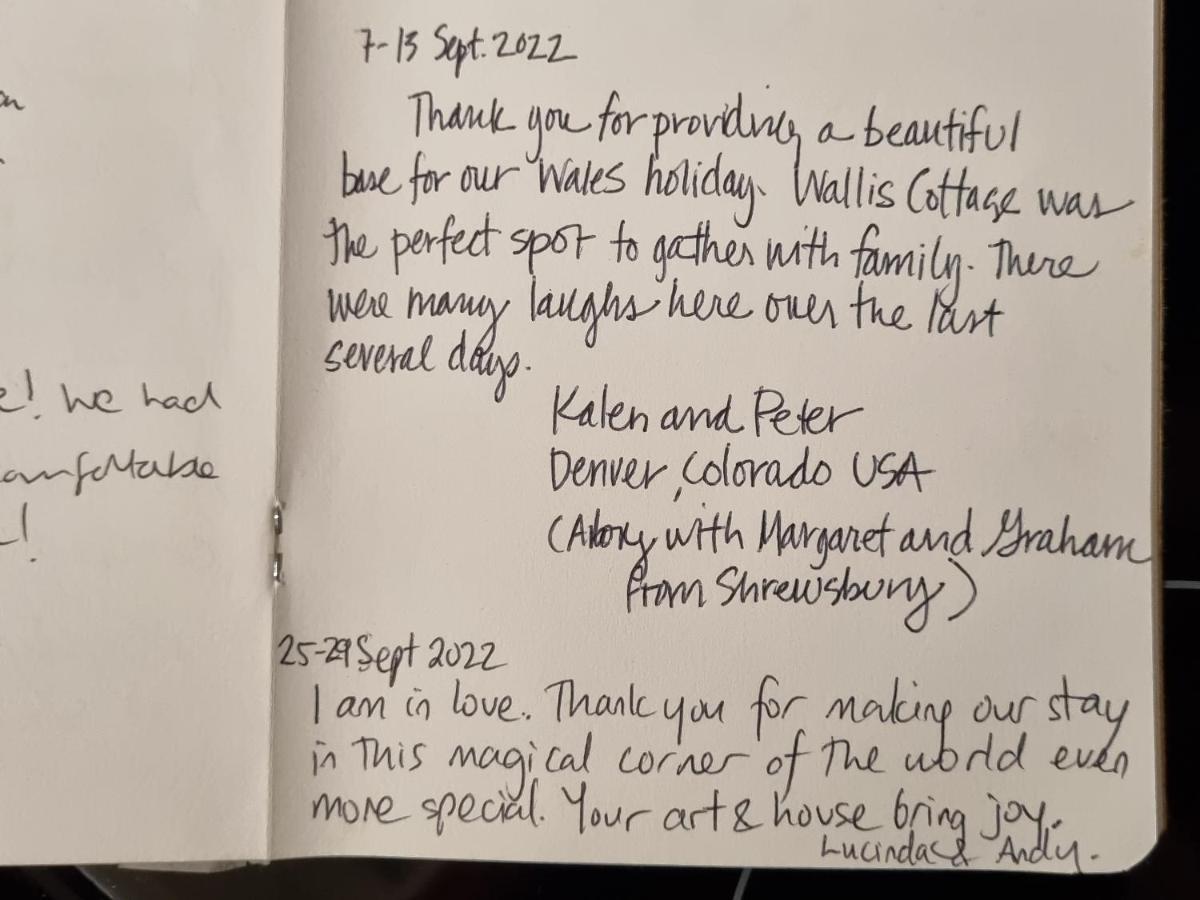 e! We had
comfortable
!
7-13 Sept. 2022
Thank you for providing a beautiful
base for our Wales holiday. Wallis Cottage was
the perfect spot to gather with family. There
were many laughs here over the last
several days.
Kalen and Peter
Denver, Colorado USA
(Along with Margaret and Graham
from Shrewsbury)
25-29 Sept 2022
I am in love. Thank you for making our stay
in this magical corner of the world even
more special. Your art & house bring joy.
Lucinda & Andy.